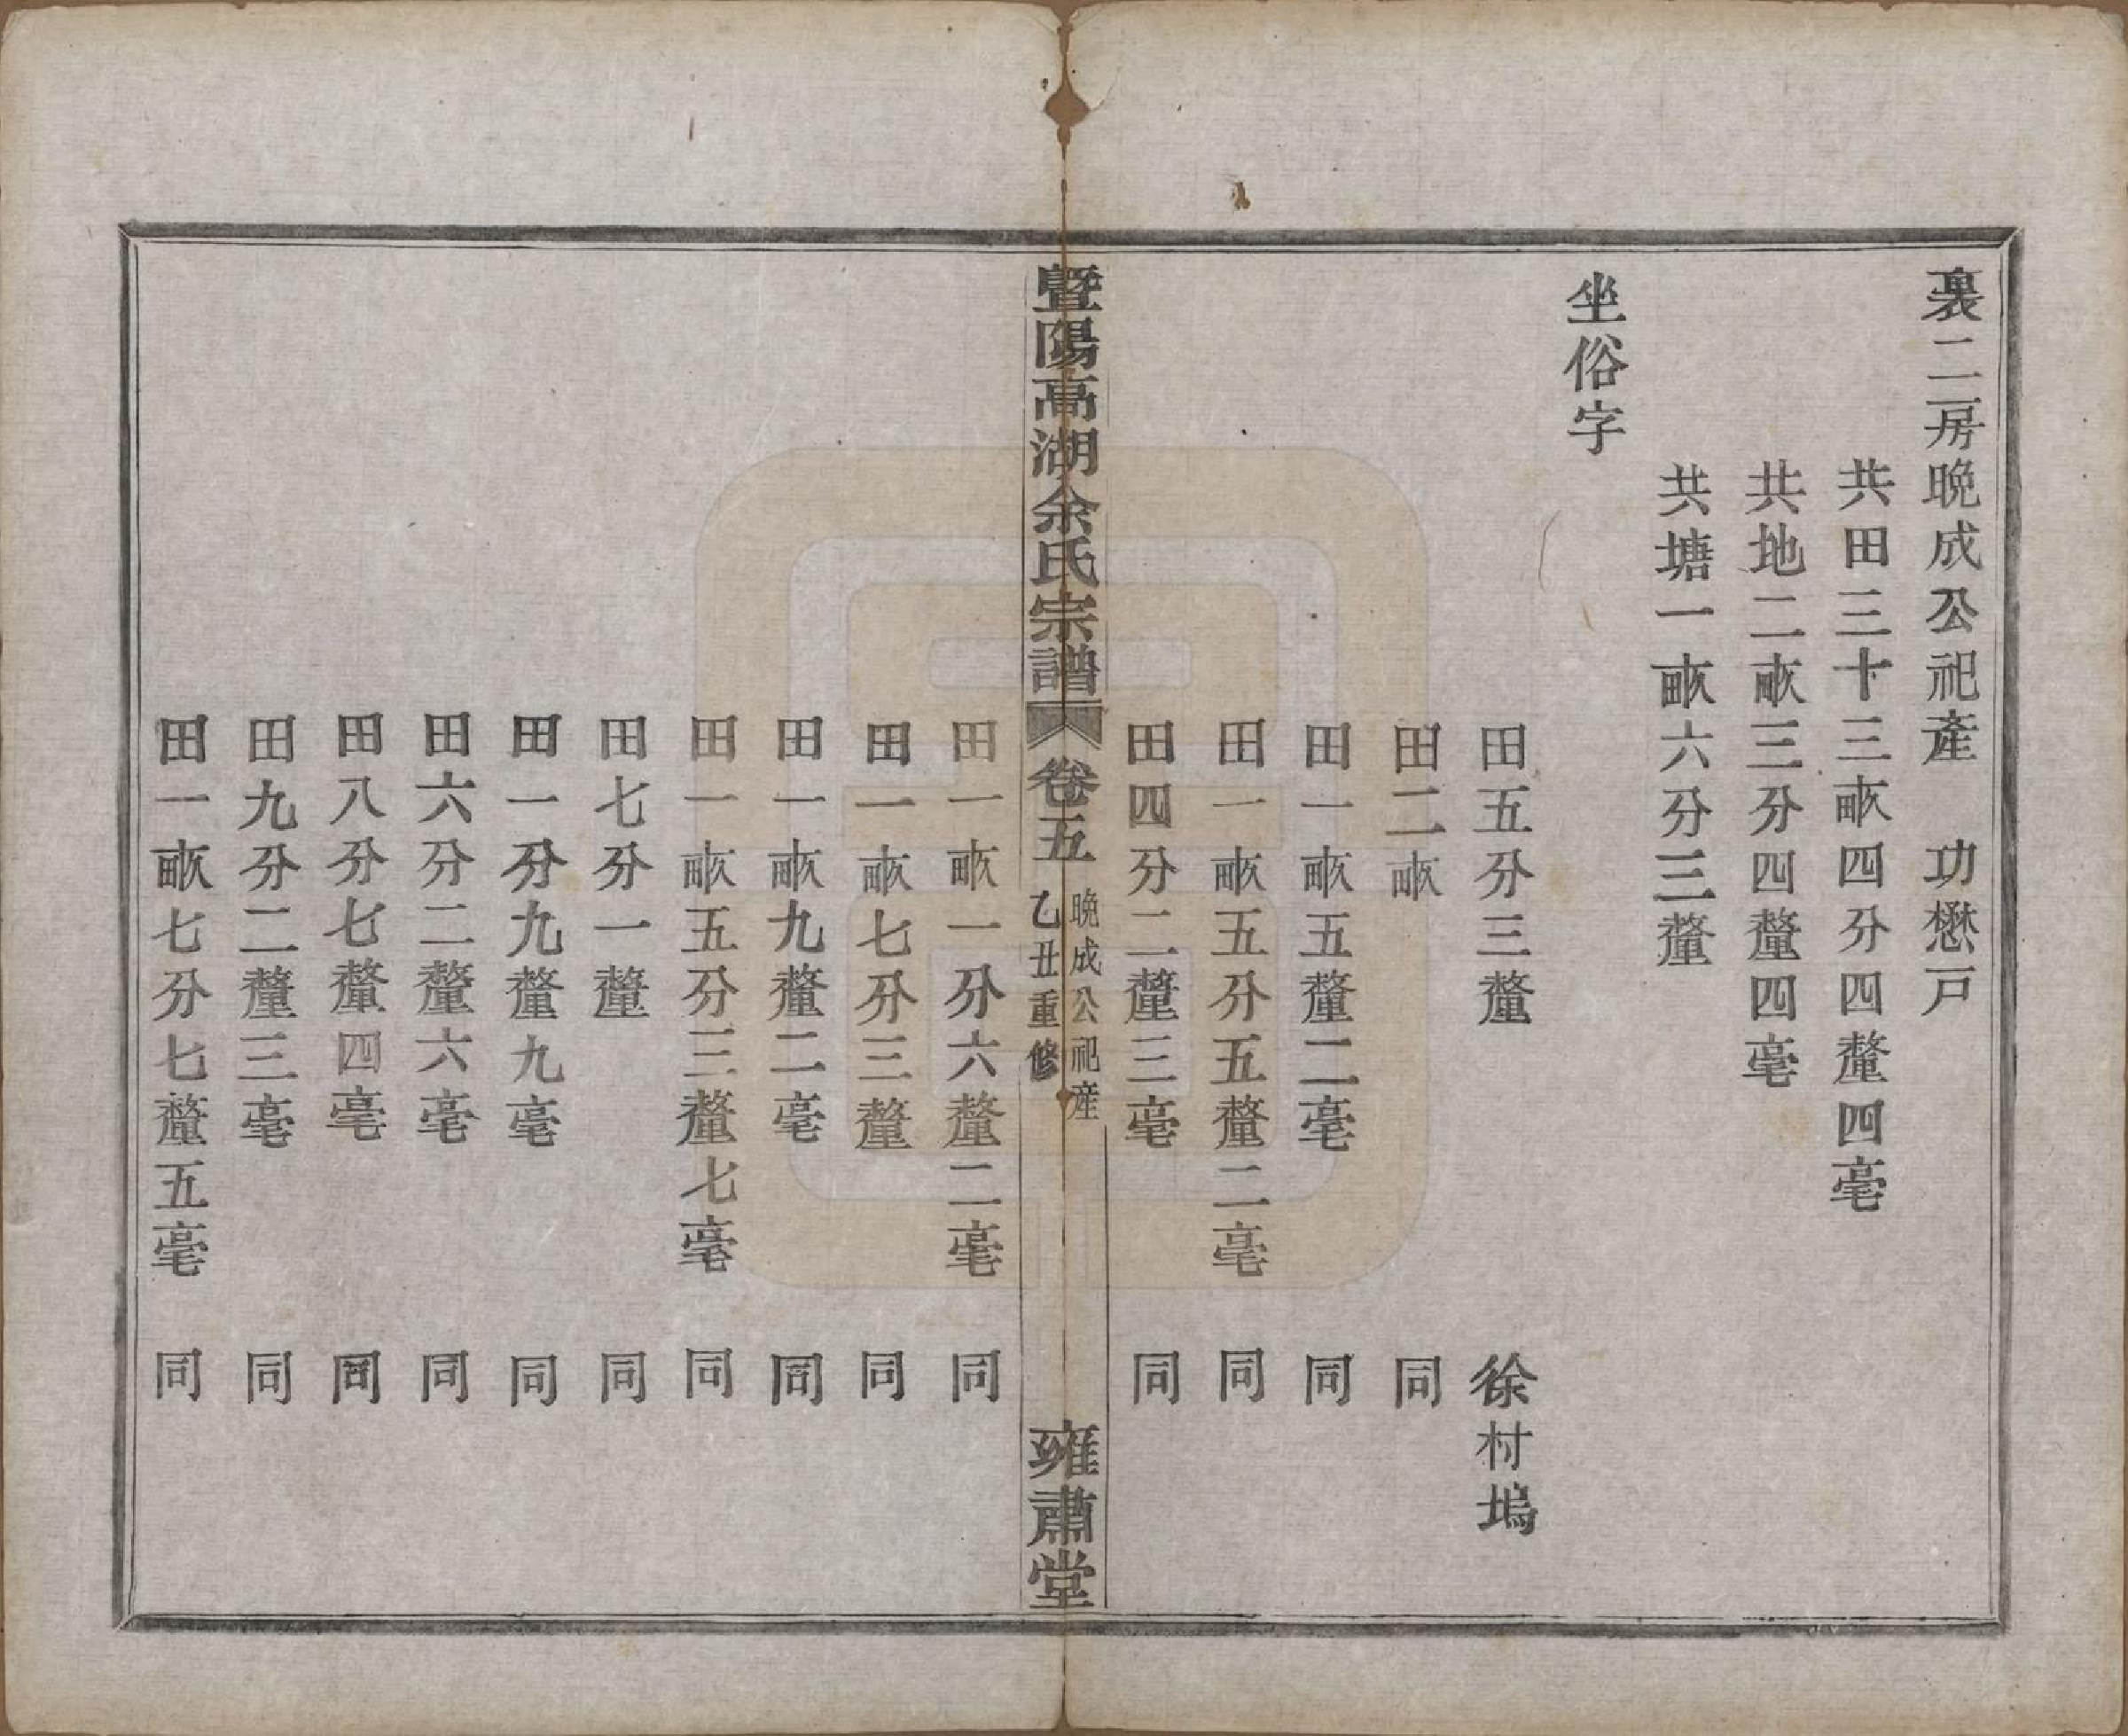 裏二房晩成公祀產　功懋戸
共田三十三畝四分四釐四毫
共地二畝三分四釐四毫
共塘一畝六分三釐
坐俗字
田五分三釐　徐村塢
田二畝　同
田一畝五釐二毫　同
田一畝五分五釐二毫　同
田四分二釐三毫　同
暨陽高湖余氏宗譜　卷五　晩成公祀產　乙丑重修　雍肅堂
田一畝一分六釐二毫　同
田一畝七分三釐　同
田一畝九釐二毫　同
田一畝五分三釐七毫　同
田七分一釐　同
田一分九釐九毫　同
田六分二釐六毫　同
田八分七釐四毫　同
田九分二釐三毫　同
田一畝七分七釐五毫　同